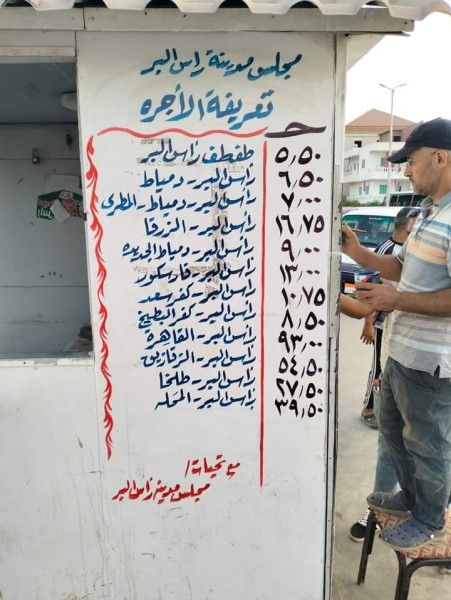 مجلس مدينة راس البر
تعريفة الأجره
حـ
طفطف راس البر ٥٫٥٠
راس البر - دمياط ٦٫٥٠
راس البر - دمياط - المطرى ٧٫٠٠
راس البر - الزرقا ١٦٫٧٥
راس البر - دمياط الجديده ٩٫٠٠
راس البر - فارسكور ١٣٫٠٠
راس البر - كفر سعد ١٠٫٧٥
راس البر - كفر البطيخ ٨٫٥٠
راس البر - القاهرة ٩٣٫٠٠
راس البر - الزقازيق ٥٤٫٥٠
راس البر - طلخا ٢٧٫٥٠
راس البر - المحله ٣٩٫٥٠
مع تحيات /
مجلس مدينة راس البر